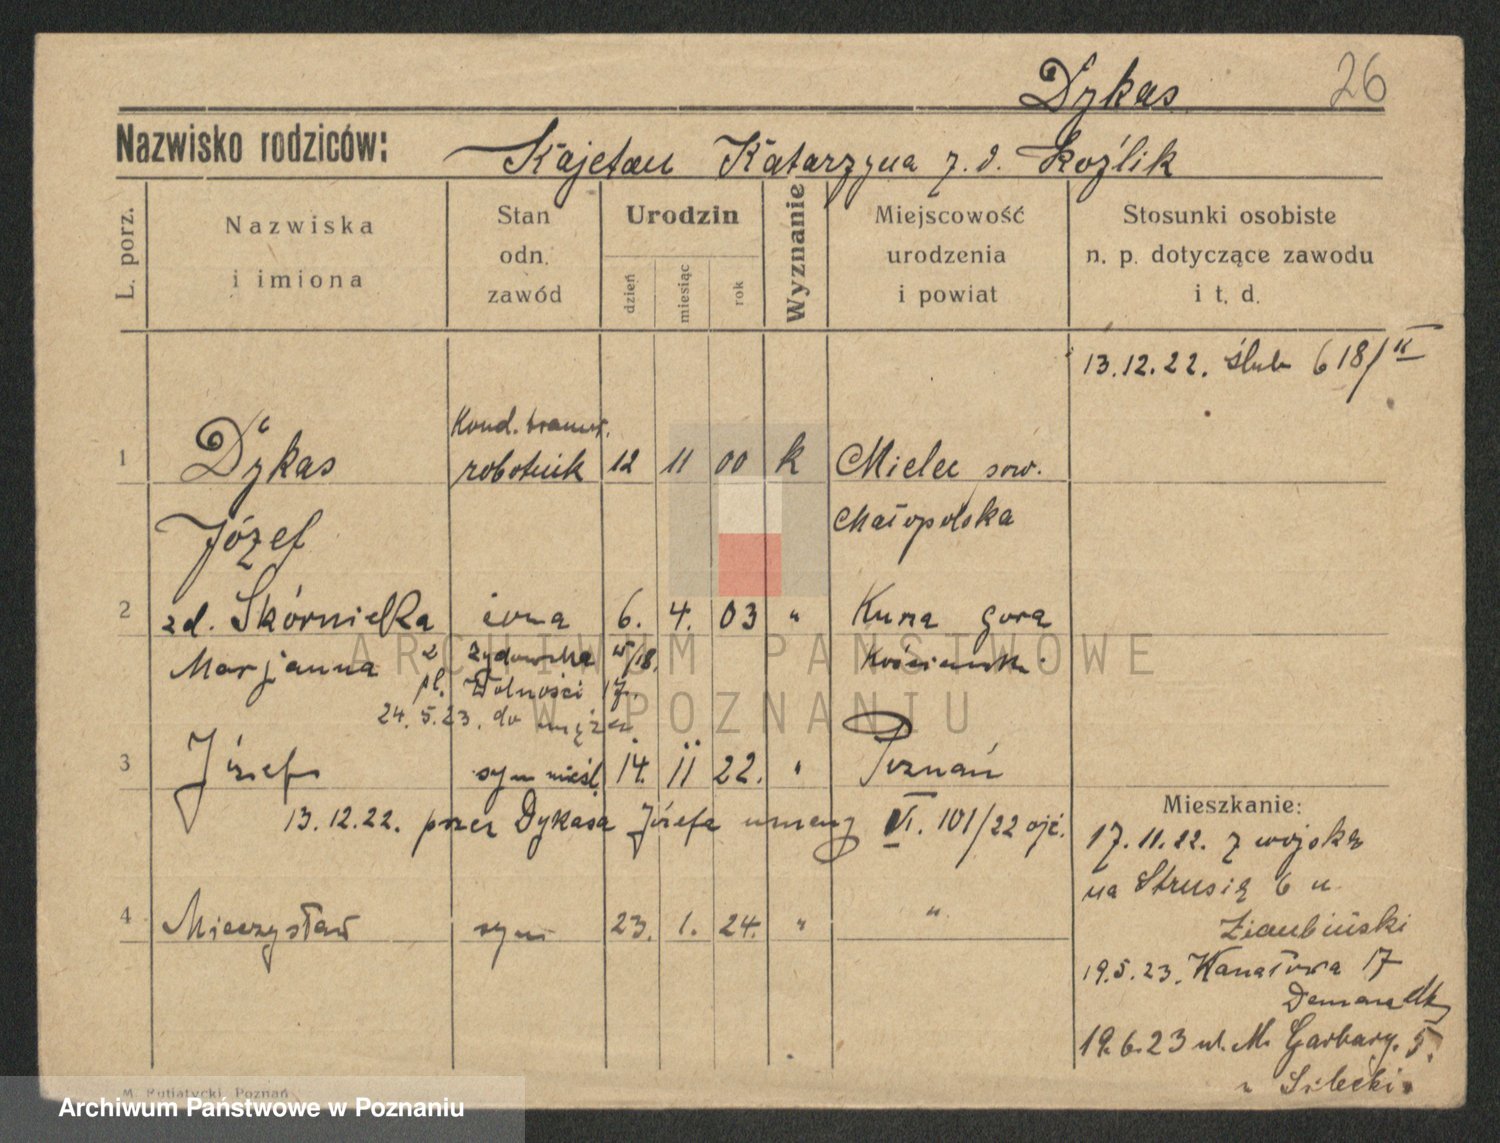 Dykas 26
Nazwisko rodziców: Kajetan Katarzyna z. d. Koźlik
L. porz.
Nazwiska
i imiona
Stan
odn.
zawód
Urodzin
dzień
miesiąc
rok
Wyznanie
Miejscowość
urodzenia
i powiat
Stosunki osobiste
n. p. dotyczące zawodu
i t. d.
13.12.22. ślub 618/II
Kond. tramw.
1 Dykas robotnik 12 11 00 k Mielec pow.
Józef Małopolska
2 zd. Skórnielka żona 6. 4. 03 " Kursa gora
Marjanna z Żydowska W/18. Kościański
pl. Wolności 17.
24.5.23. do męża
3 Józef syn nieśl. 14. 11 22. " Poznań
13.12.22. przez Dykasa Józefa uznany VI. 101/22 ojc.
4 Mieczysław syn 23. 1. 24. " "
Mieszkanie:
17.11.22. z wojska
na Strusią 6 u
Ziembiński
19.5.23. Kanałowa 17
19.6.23 ul. M. Garbary. 5.
u Silecki
M. Putiatycki, Poznań
ARCHIWUM PAŃSTWOWE
W POZNANIU
Archiwum Państwowe w Poznaniu